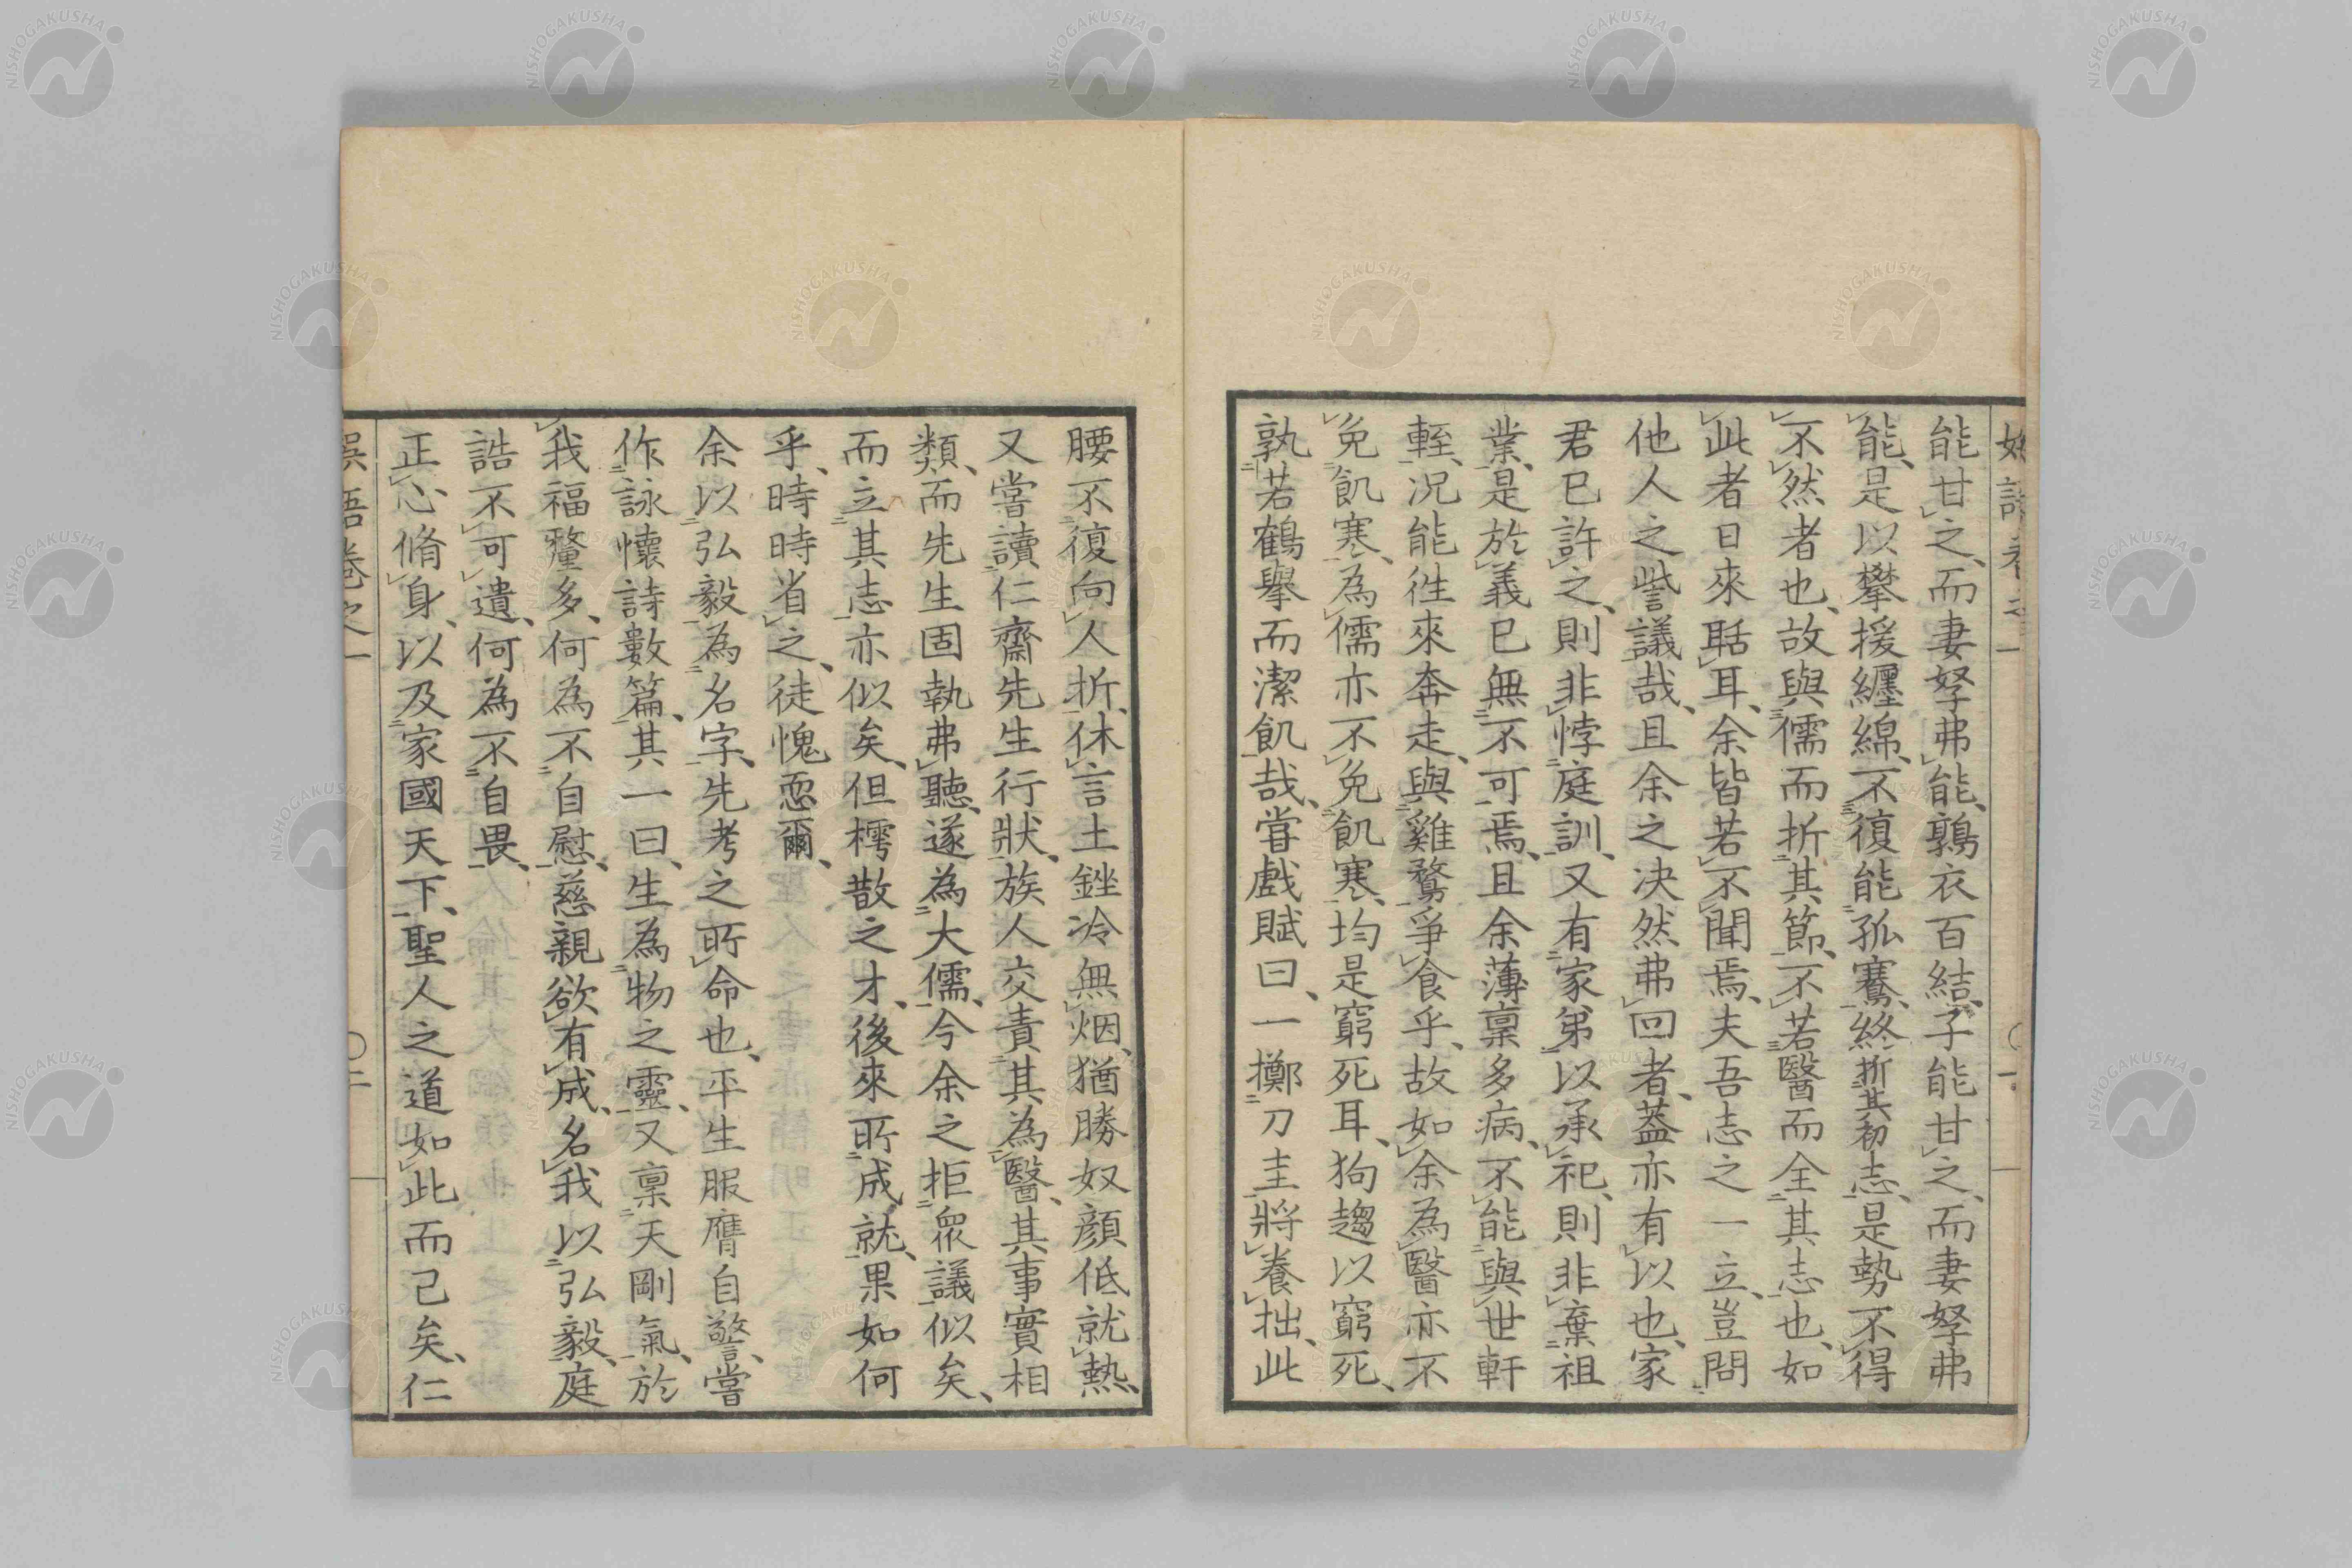 能甘之、而妻孥弗能、鶉衣百結、子能甘之、而妻孥弗
能、是以攀援纒綿、不復能孤騫、終折其初志、是勢不得
不然者也、故與儒而折其節、不若醫而全其志也、如
此者日來聒耳、余皆若不聞焉、夫吾志之一立、豈問
他人之訾議哉、且余之决然弗回者、蓋亦有以也、家
君已許之、則非悖庭訓、又有家弟以承祀、則非棄祖
業、是於義已無不可焉、且余薄稟多病、不能與世軒
輊、況能徃來奔走、與雞鶩爭食乎、故如余為醫亦不
免飢寒、為儒亦不免飢寒、均是窮死耳、狗趨以窮死、
孰若鶴擧而潔飢哉、甞戲賦曰、一擲刀圭將養拙、此
腰不復向人折、休言土銼冷無烟、猶勝奴顔低就熱、
又嘗讀仁齋先生行狀、族人交責其為醫、其事實相
類、而先生固執弗聽、遂為大儒、今余之拒眾議似矣、
而立其志亦似矣、但樗散之才、後來所成就、果如何
乎、時時省之、徒愧恧爾、
余以弘毅為名字、先考之所命也、平生服膺自警、嘗
作詠懷詩數篇、其一曰、生為物之靈、又稟天剛氣、於
我福釐多、何為不自慰、慈親欲有成、名我以弘毅、庭
誥不可遺、何為不自畏、
正心脩身、以及家國天下、聖人之道如此而已矣、仁
語卷之一
〇二